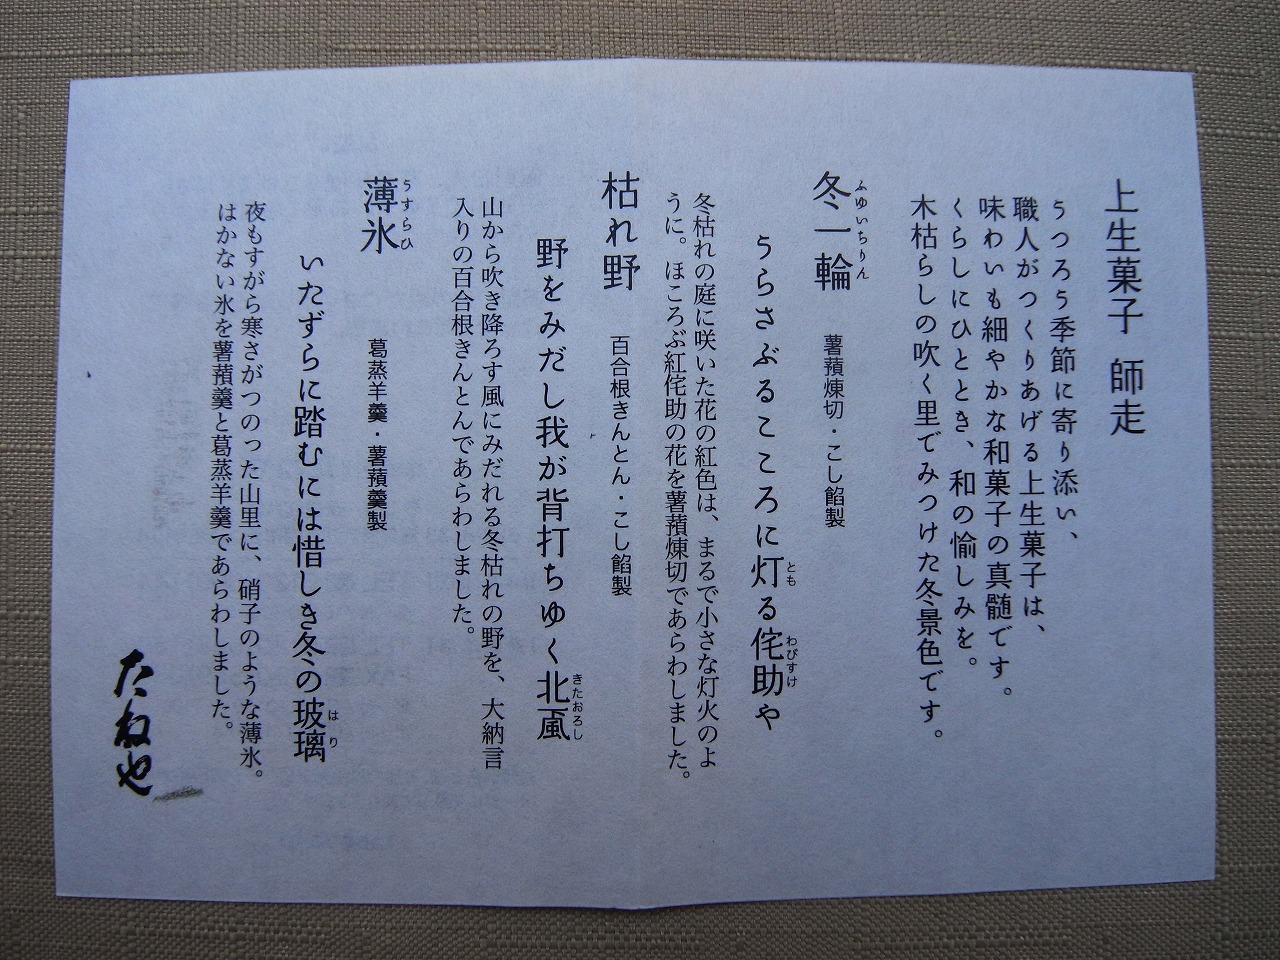 上生菓子 師走
うつろう季節に寄り添い、
職人がつくりあげる上生菓子は、
味わいも細やかな和菓子の真髄です。
くらしにひととき、和の愉しみを。
木枯らしの吹く里でみつけた冬景色です。
冬一輪 薯蕷煉切・こし餡製
ふゆいちりん
うらさぶるこころに灯る侘助や
とも わびすけ
冬枯れの庭に咲いた花の紅色は、まるで小さな灯火のよ
うに。ほころぶ紅侘助の花を薯蕷煉切であらわしました。
枯れ野 百合根きんとん・こし餡製
野をみだし我が背打ちゆく北颪
きたおろし
山から吹き降ろす風にみだれる冬枯れの野を、大納言
入りの百合根きんとんであらわしました。
薄氷 葛蒸羊羹・薯蕷羹製
うすらひ
いたずらに踏むには惜しき冬の玻璃
はり
夜もすがら寒さがつのった山里に、硝子のような薄氷。
はかない氷を薯蕷羹と葛蒸羊羹であらわしました。
たねや